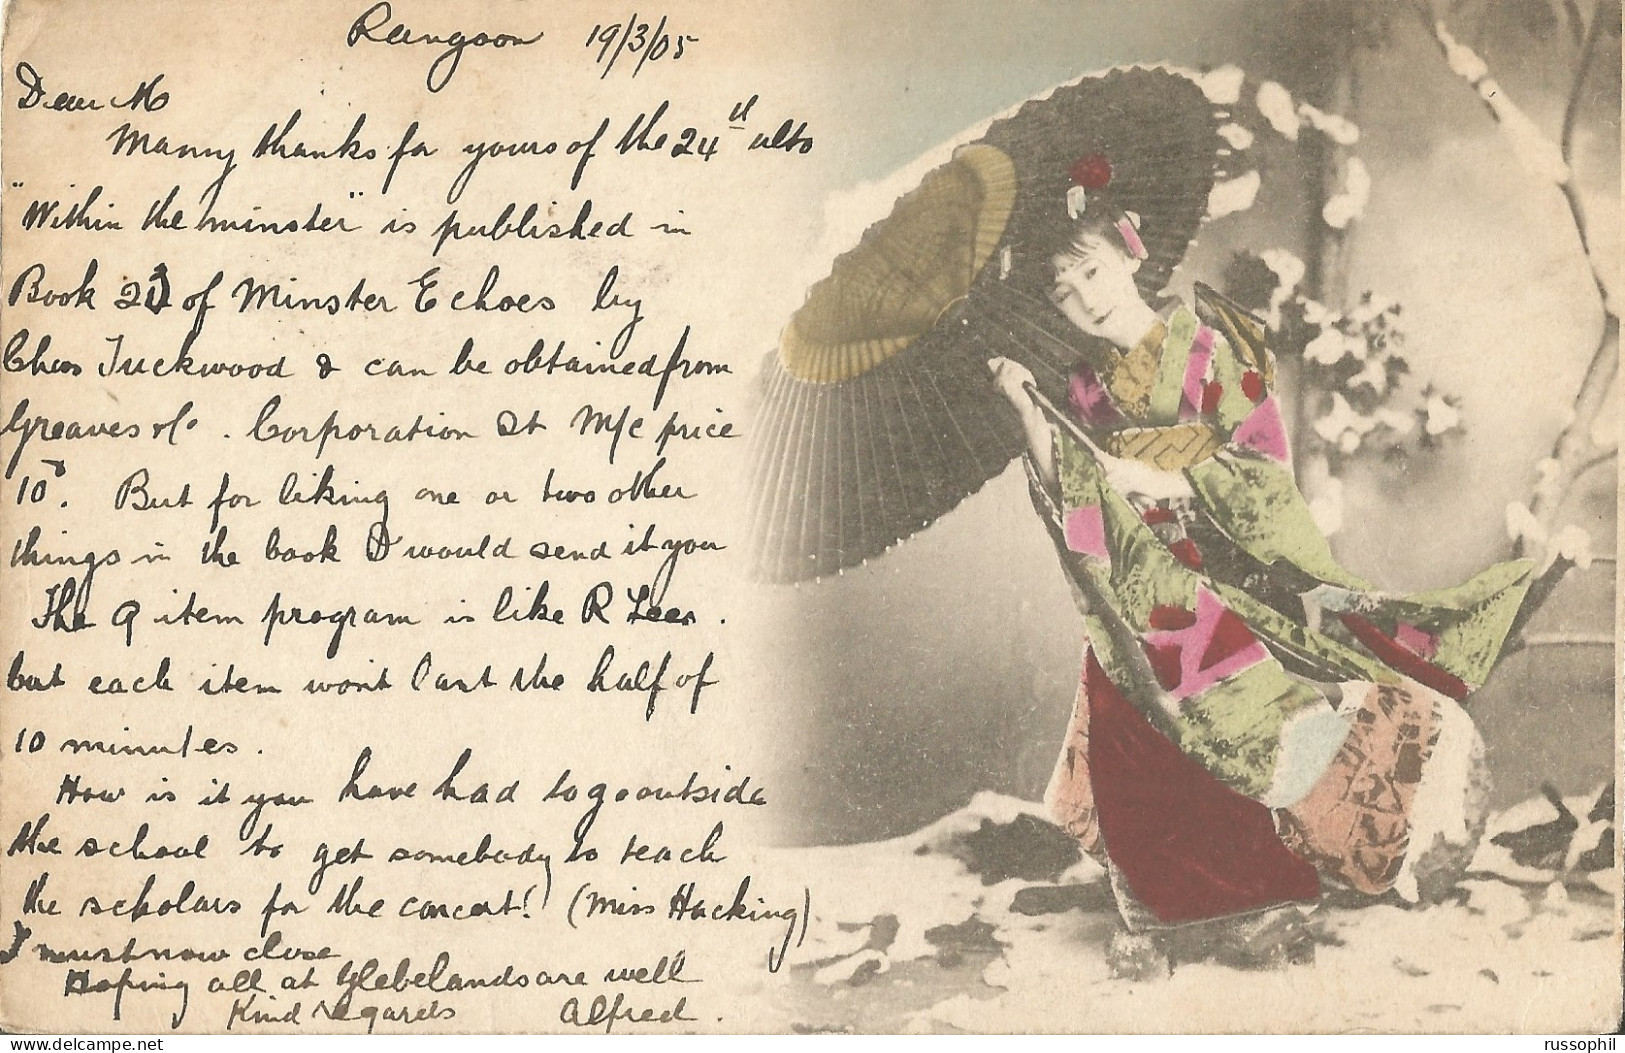 Rangoon 19/3/05
Dear M
Many thanks for yours of the 24th ulto
"Within the minster" is published in
Book 21 of Minster Echoes by
Chas Tuckwood & can be obtained from
Greaves & Co. Corporation St M/c price
10d. But for liking one or two other
things in the book I would send it you
The 9 item program is like R Lees.
but each item wont last the half of
10 minutes.
How is it you have had to go outside
the school to get somebody to teach
the scholars for the concert! (Miss Hacking)
I must now close
Hoping all at Glebelands are well
Kind regards Alfred.
russophil www.delcampe.net